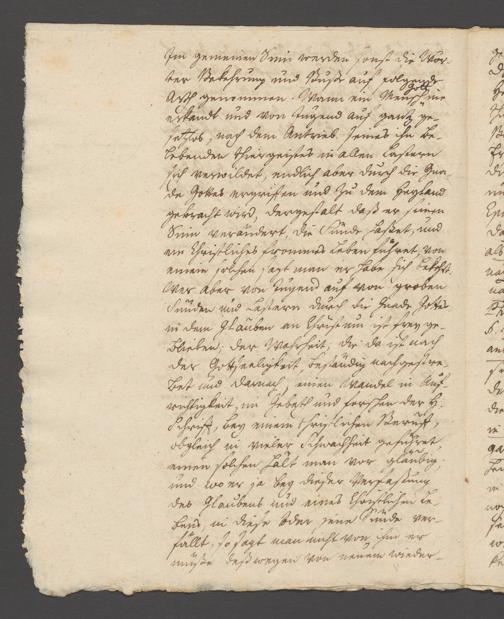 Im gemeinen Sinn werden sonst die Wör-
ter Bekehrung und Buße auf folgende
Arth genommen. Wann ein Mensch
erkandt und von Jugend auf gantz ge-
setzlos, nach dem Antrieb seines ihn be-
lebenden Thiergeistes in allen Lastern
sich verwildet, endlich aber durch die Gna-
de Gottes ergriffen und zu dem Heyland
gebracht wird, dergestalt daß er seinen
Sinn verändert, die Sünde hasset, und
ein Christliches frommes Leben führet, von
einem solchen sagt man er habe sich bekehrt.
Wer aber von Jugend auf von groben
Sünden und Lastern durch die Gnade Gottes
in dem Glauben an Christum ist frey ge-
blieben, der Wahrheit, die da ist nach
der Gottseeligkeit, beständig nachgestre-
bet und darnach einen Wandel in Auf-
richtigkeit, im Gebeth und Forschen der H.
Schrifft, bey einem Christlichen Beruff,
obgleich in vieler Schwachheit geführet,
einen solchen hält man vor gläubig.
und wo er ja bey dieser Verfassung
des Glaubens und eines Christlichen Le-
bens in diese oder jene Sünde ver-
fällt, so sagt man nicht von ihm er
müsse deßwegen von neuem wieder-